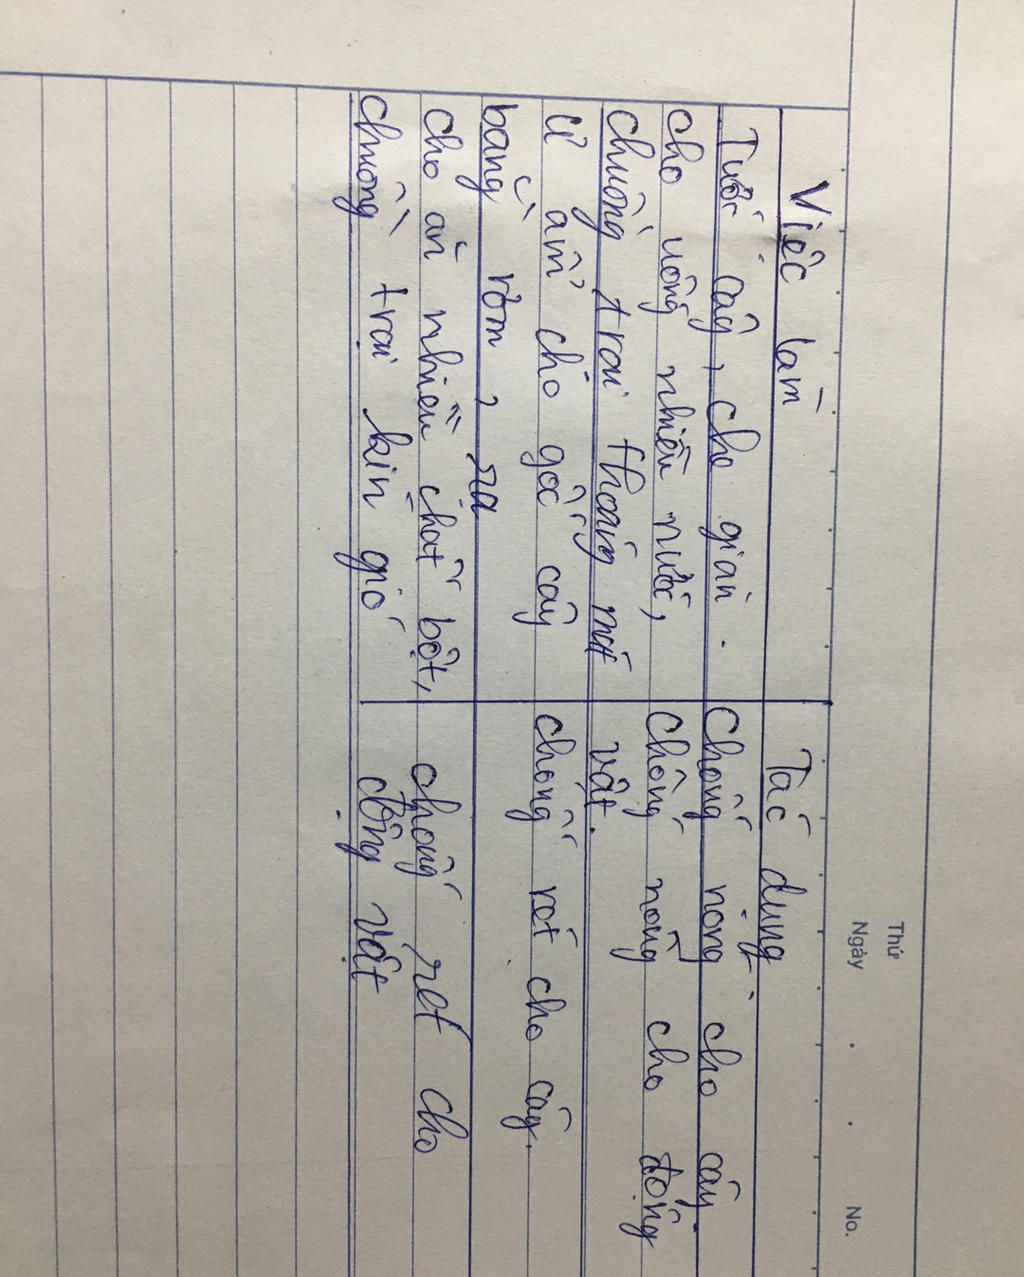 Thứ
Ngày
No.
Việc làm
Tác dụng
Tưới cây, che giàn.
Chống nóng cho cây.
cho uống nhiều nước,
chuồng trại thoáng mát
Chống nóng cho động
vật.
ủ ấm cho gốc cây
bằng rơm, rạ
chống rét cho cây.
cho ăn nhiều chất bột,
chuồng trại kín gió
chống rét cho
động vật